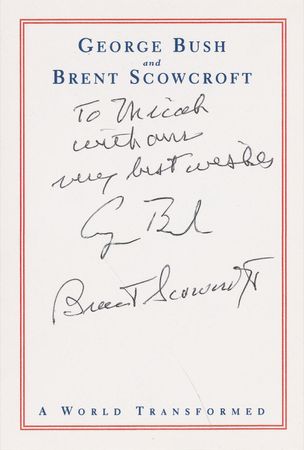 GEORGE BUSH
and
BRENT SCOWCROFT
To Micah
with our
very best wishes
G Bush
Brent Scowcroft
A WORLD TRANSFORMED